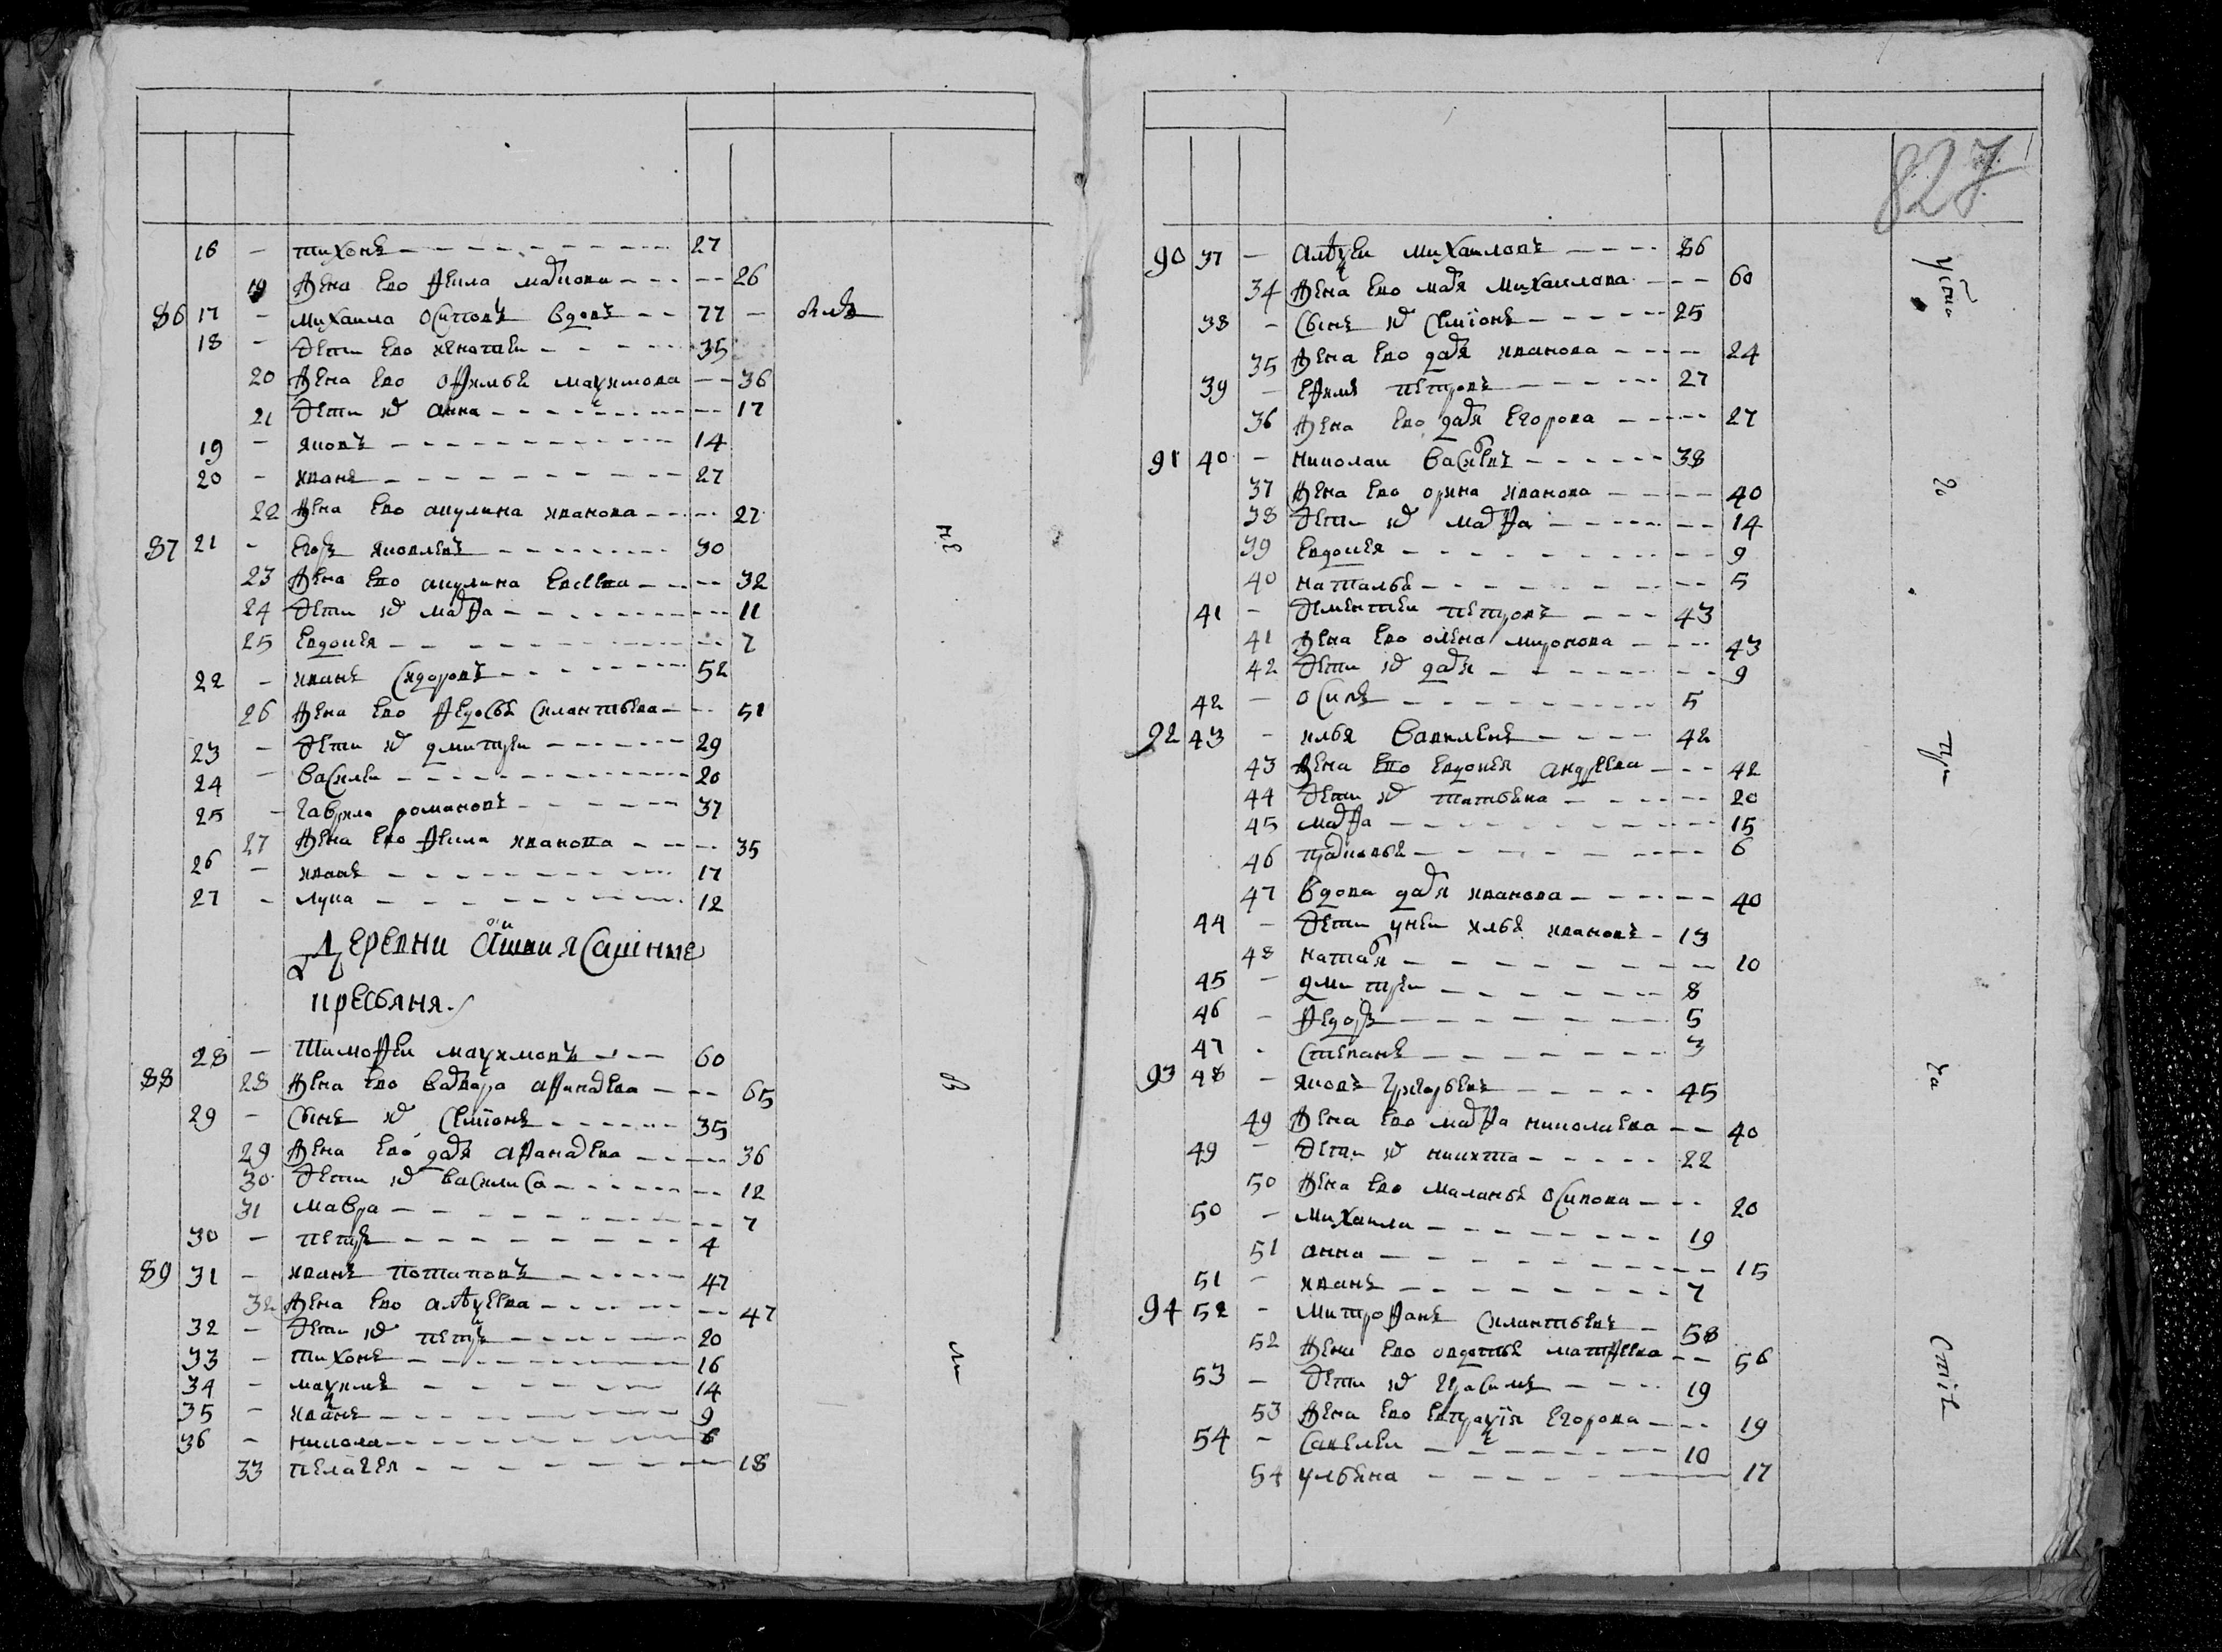 16 - тихонъ - 27
19 жена ево фекла маркова - 26
86 17 - михаила осиповъ вдовъ - 77 -
18 - дети ево игнатеи - 35
20 жена ево офимья максимова - 36
21 дети их анна - 17
19 - яковъ - 14
20 - иванъ - 27
22 жена ево акулина иванова - 27
87 21 - егоръ яковлевъ - 30
23 жена ево акулина евсеева - 32
24 дети их марфа - 11
25 евдокея - 7
22 - иванъ сидоровъ - 52
26 жена ево федосья силантьева - 51
23 - дети их дмитреи - 29
24 - василеи - 20
25 - гаврила романовъ - 37
27 жена ево фекла иванова - 35
26 - иванъ - 17
27 - лука - 12
деревни
кресьяня
28 - тимофеи максимовъ - 60
88 28 жена ево варвара афанасева - 65
29 - сынъ их семионъ - 35
29 жена ево дарья афанасева - 36
30 дети их василиса - 12
31 мавра - 7
30 - петръ - 4
89 31 - иванъ потаповъ - 47
32 жена ево алексеева - 47
32 - дети их петръ - 20
33 - тихонъ - 16
34 - максимъ - 14
35 - иванъ - 9
36 - никола - 6
33 пелагея - 18
не
в
ли
827
90 37 - алексеи михаиловъ - 86
34 жена ево марья михаилова - 60
38 - сынъ их семионъ - 25
35 жена ево дарья иванова - 24
39 - ефимъ петровъ - 27
36 жена ево дарья егорова - 27
91 40 - николаи васильевъ - 38
37 жена ево орина иванова - 40
38 дети их марфа - 14
39 евдокея - 9
40 наталья - 5
41 - дементеи петровъ - 43
41 жена ево олена миронова - 43
42 дети их дарья - 9
42 - осипъ - 5
92 43 - илья - 42
43 жена ево евдокея андреева - 42
44 дети их татьяна - 20
45 марфа - 15
46 прасковья - 6
47 вдова дарья иванова - 40
44 - дети унеи илья ивановъ - 13
48 наталья - 10
45 - дмитреи - 8
46 - федоръ - 5
47 - степанъ - 3
93 48 - яковъ григорьевъ - 45
49 жена ево марфа николаева - 40
49 - дети их никита - 22
50 жена ево маланья осипова - 20
50 - михаила - 19
51 анна - 15
51 - иванъ - 7
94 52 - митрофанъ силантьевъ - 58
52 жена ево овдотья матфеева - 56
53 - дети их герасимъ - 19
53 жена ево евпраксия егорова - 19
54 - савелеи - 10
54 ульяна - 17
го
при
ча
стие